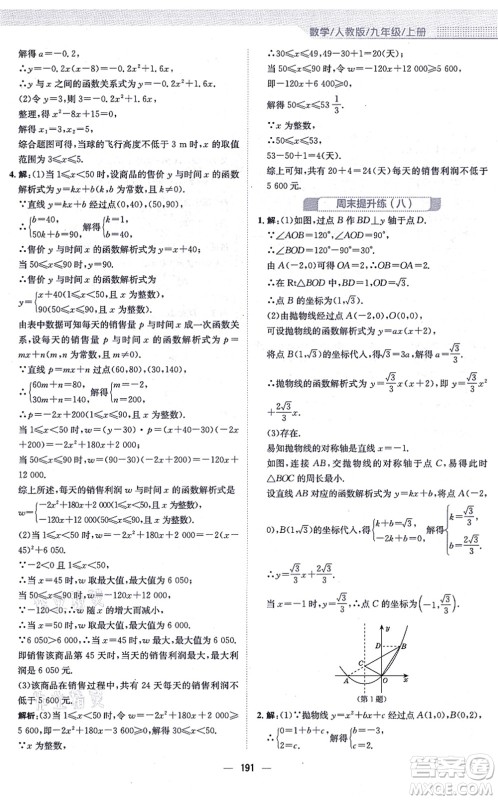 数学/人教版/九年级/上册
解得 a=-0.2,
∴y=-0.2x(x-8)=-0.2x²+1.6x,
∴y 与 x 之间的函数关系式为 y=-0.2x²+1.6x.
(2)令 y=3,则-0.2x²+1.6x=3.
整理,得 x²-8x+15=0.
解得 x₁=3,x₂=5.
综合题图可得,当球的飞行高度不低于 3 m 时,x 的取值
范围为 3≤x≤5.
4.解:(1)当 1≤x<50 时,设商品的售价 y 与时间 x 的函数
解析式为 y=kx+b(k,b 为常数,且 k≠0).
∵直线 y=kx+b 过点(0,40),(50,90),
∴{b=40, 50k+b=90, 解得{k=1, b=40.
∴售价 y 与时间 x 的函数解析式为 y=x+40.
当 50≤x≤90 时,y=90,
∴售价 y 与时间 x 的函数解析式为
y={x+40(1≤x<50,且 x 为整数), 90(50≤x≤90,且 x 为整数).
由表中数据可知每天的销售量 p 与时间 x 成一次函数关
系,设每天的销售量 p 与时间 x 的函数解析式为 p=
mx+n(m,n 为常数,且 m≠0).
∵直线 p=mx+n 过点(60,80),(30,140),
∴{60m+n=80, 30m+n=140, 解得{m=-2, n=200.
∴p=-2x+200(1≤x≤90,且 x 为整数).
当 1≤x<50 时,w=-2x²+180x+2 000;
当 50≤x≤90 时,w=(90-30)(-2x+200)=-120x+
12 000.
综上所述,每天的销售利润 w 与时间 x 的函数解析式是
w={-2x²+180x+2 000(1≤x<50,且 x 为整数), -120x+12 000(50≤x≤90,且 x 为整数).
(2)当 1≤x<50 时,w=-2x²+180x+2 000=-2(x-
45)²+6 050.
∵-2<0 且 1≤x<50,
∴当 x=45 时,w 取最大值,最大值为 6 050;
当 50≤x≤90 时,w=-120x+12 000.
∵-120<0,∴w 随 x 的增大而减小,
∴当 x=50 时,w 取最大值,最大值为 6 000.
∵6 050>6 000,∴当 x=45 时,w 最大,最大值为 6 050.
即销售该商品第 45 天时,当天的销售利润最大,最大利润
是 6 050 元.
(3)该商品在销售过程中,共有 24 天每天的销售利润不低
于 5 600 元.
解析:(3)当 1≤x<50 时,令 w=-2x²+180x+2 000≥
5 600,即-2x²+180x-3 600≥0,
∵x 为整数,
∴30≤x≤49,49-30+1=20(天).
当 50≤x≤90 时,令 w=-120x+12 000≥5 600,
即-120x+6 400≥0,
解得 50≤x≤53 1/3.
∵x 为整数,
∴50≤x≤53,
53-50+1=4(天).
综上可知,共有 20+4=24(天)每天的销售利润不低于
5 600 元.
周末提升练(八)
1.解:(1)如图,过点 B 作BD⊥y 轴于点 D.
∵∠AOB=120°,∠AOD=90°,
∴∠BOD=120°-90°=30°.
由 A(-2,0)可得 OA=2,∴OB=OA=2,
∴在 Rt△BOD 中,易得 BD=1,OD=√3,
∴点 B 的坐标为(1,√3).
(2)由抛物线经过点 A(-2,0),O(0,0),
可设抛物线的函数解析式为 y=ax(x+2),
将 B(1,√3)的坐标代入,得√3=3a,解得 a=√3/3,
∴抛物线的函数解析式为 y=√3/3 x(x+2),即 y=√3/3 x²+
2√3/3 x.
(3)存在.
易知抛物线的对称轴为直线 x=-1.
如图,连接 AB,交抛物线的对称轴于点 C,此时
△BOC 的周长最小.
设直线 AB 的函数解析式为 y=kx+b,将 A(-2,
0),B(1,√3)的坐标代入,得{k+b=√3, -2k+b=0, 解得{k=√3/3, b=2√3/3,
∴y=√3/3 x+2√3/3.
当 x=-1 时,y=√3/3,∴点 C 的坐标为(-1,√3/3).
y
B
D
C
A
O
x
(第 1 题)
191